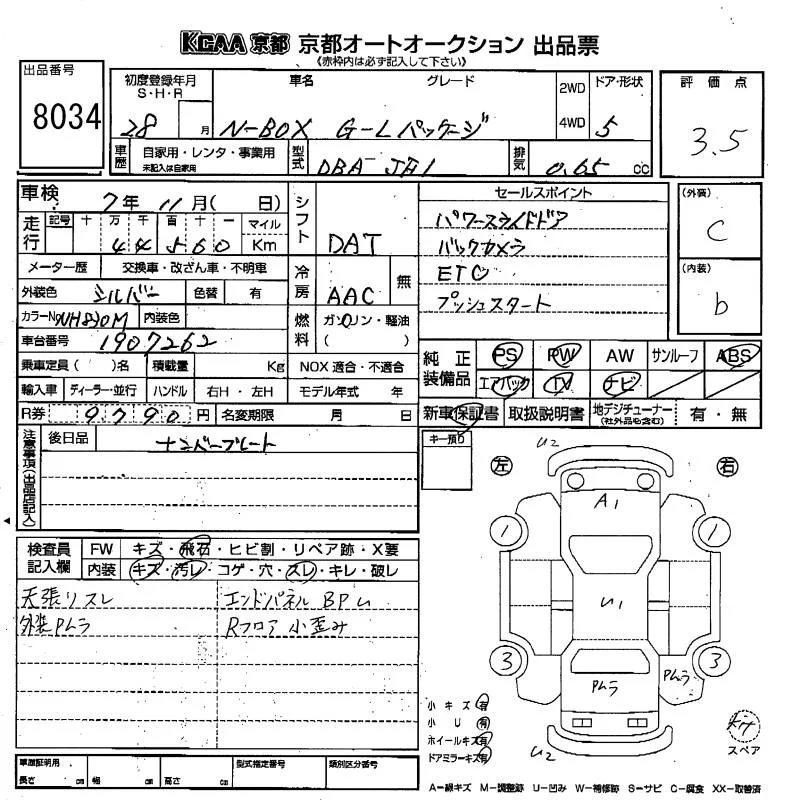 KCAA 京都 京都オートオークション 出品票
《赤枠内は必ず記入して下さい》
出品番号
8034
初度登録年月
S・H・R
28 月
車名 グレード
N-BOX G-Lパッケージ
2WD
4WD
ドア・形状
5
評価点
3.5
車歴
自家用・レンタ・事業用
未記入は自家用
型式
DBA-JF1
排気
0.65 CC
車検
7年 11月( 日)
走行
記号 十 万 千 百 十 一 マイル
4 4 5 6 0 Km
メーター歴 交換車・改ざん車・不明車
外装色 シルバー 色替 有
カラーNo NH830M 内装色
車台番号 1907262
乗車定員( )名 積載量 Kg
輸入車 ディーラー・並行 ハンドル 右H・左H
R券 9790円 名変期限 月 日
シフト
DAT
冷房
AAC 無
燃料
ガソリン・軽油
( )
NOX 適合・不適合
モデル年式 年
セールスポイント
パワースライドドア
バックカメラ
ETC
プッシュスタート
(外装)
C
(内装)
b
純正装備品
PS PW AW サンルーフ ABS
エアバック TV ナビ
新車保証書 取扱説明書 地デジチューナー 有・無
(社外品も含む)
注意事項(出品店記入)
後日品 ナンバープレート
キー預り
検査員記入欄
FW キズ・飛石・ヒビ割・リペア跡・X要
内装 キズ・汚レ・コゲ・穴・スレ・キレ・破レ
天張りスレ エンドパネル BPU
外装PLラ Rフロア 小歪み
左 右
U2
A1
1 1
U1
3 3
U2
小キズ 有
小U 有
ホイールキズ 有
ドアミラーキズ 有
スペア
車庫証明用
長さ cm 幅 cm 高さ cm
型式指定番号 類別区分番号
A−線キズ M−調整跡 U−凹み W−補修跡 S−サビ C−腐食 XX−取替済